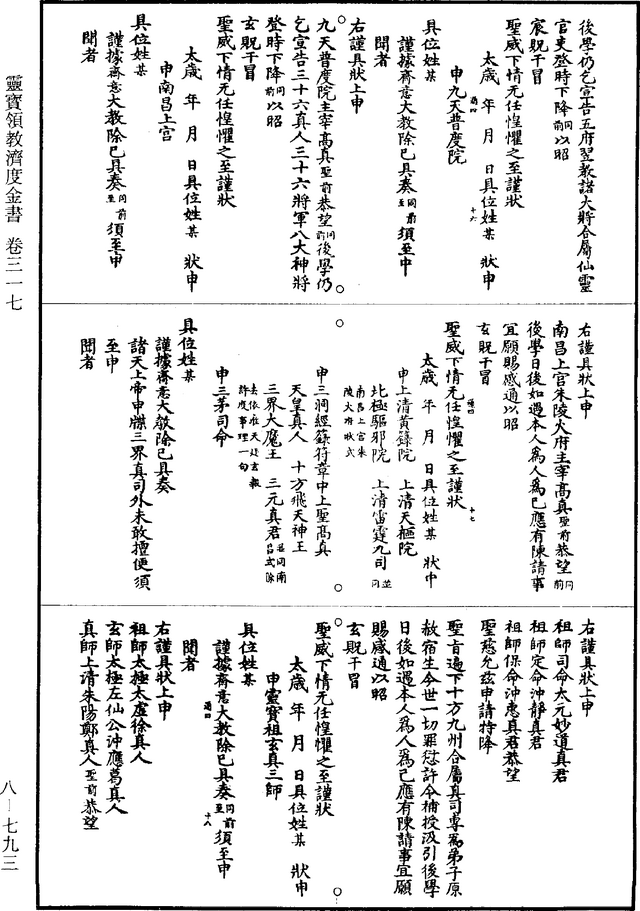 靈寶領教濟度金書 卷三一七
後學仍乞宣告五府翌教諸大將合屬仙靈
官吏登時下降同前以昭
宸貺干冒
聖威下情无任惶懼之至謹狀
太歲 年 月 日具位姓某 狀申
申九天普度院
通四 十六
具位姓某
謹據齋意大教除已具奏同前至須至申
聞者
右謹具狀上申
九天普度院主宰高真聖前恭望同前後學仍
乞宣告三十六真人三十六將軍八大神將
登時下降同前以昭
玄貺干冒
聖威下情无任惶懼之至謹狀
太歲 年 月 日具位姓某 狀申
申南昌上宮
具位姓某
謹據齋意大教除已具奏同前至須至申
聞者
右謹具狀上申
南昌上宮朱陵火府主宰高真聖前恭望同前
後學日後如遇本人為人為己應有陳請事
宜願賜感通以昭
玄貺干冒
通四 十七
聖威下情无任惶懼之至謹狀
太歲 年 月 日具位姓某 狀申
申上清黃籙院 上清天樞院
北極驅邪院 上清雷霆九司並同
南昌上宮朱陵火府狀式
申三洞經籙符章中上聖高真
天皇真人 十方飛天神王
三界大魔王 三元真君並同南昌式除
去依唯天廷玄報許度事理一句
申三茅司命
具位姓某
謹據齋意大教除已具奏
諸天上帝申牒三界真司外未敢擅便須
至申
聞者
右謹具狀上申
祖師司命太元妙道真君
祖師定命沖靜真君
祖師保命沖惠真君恭望
聖慈允茲申請特降
聖旨遍下十方九州合屬真司專為弟子原
赦宿生今世一切罪愆許令補授汲引後學
日後如遇本人為人為己應有陳請事宜願
賜感通以昭
玄貺干冒
聖威下情无任惶懼之至謹狀
太歲 年 月 日具位姓某 狀申
申靈寶祖玄真三師
具位姓某
通四 十八
謹據齋意大教除已具奏同前至須至申
聞者
右謹具狀上申
祖師太極太虛徐真人
玄師太極左仙公沖應葛真人
真師上清朱陽鄭真人聖前恭望
八—七九三